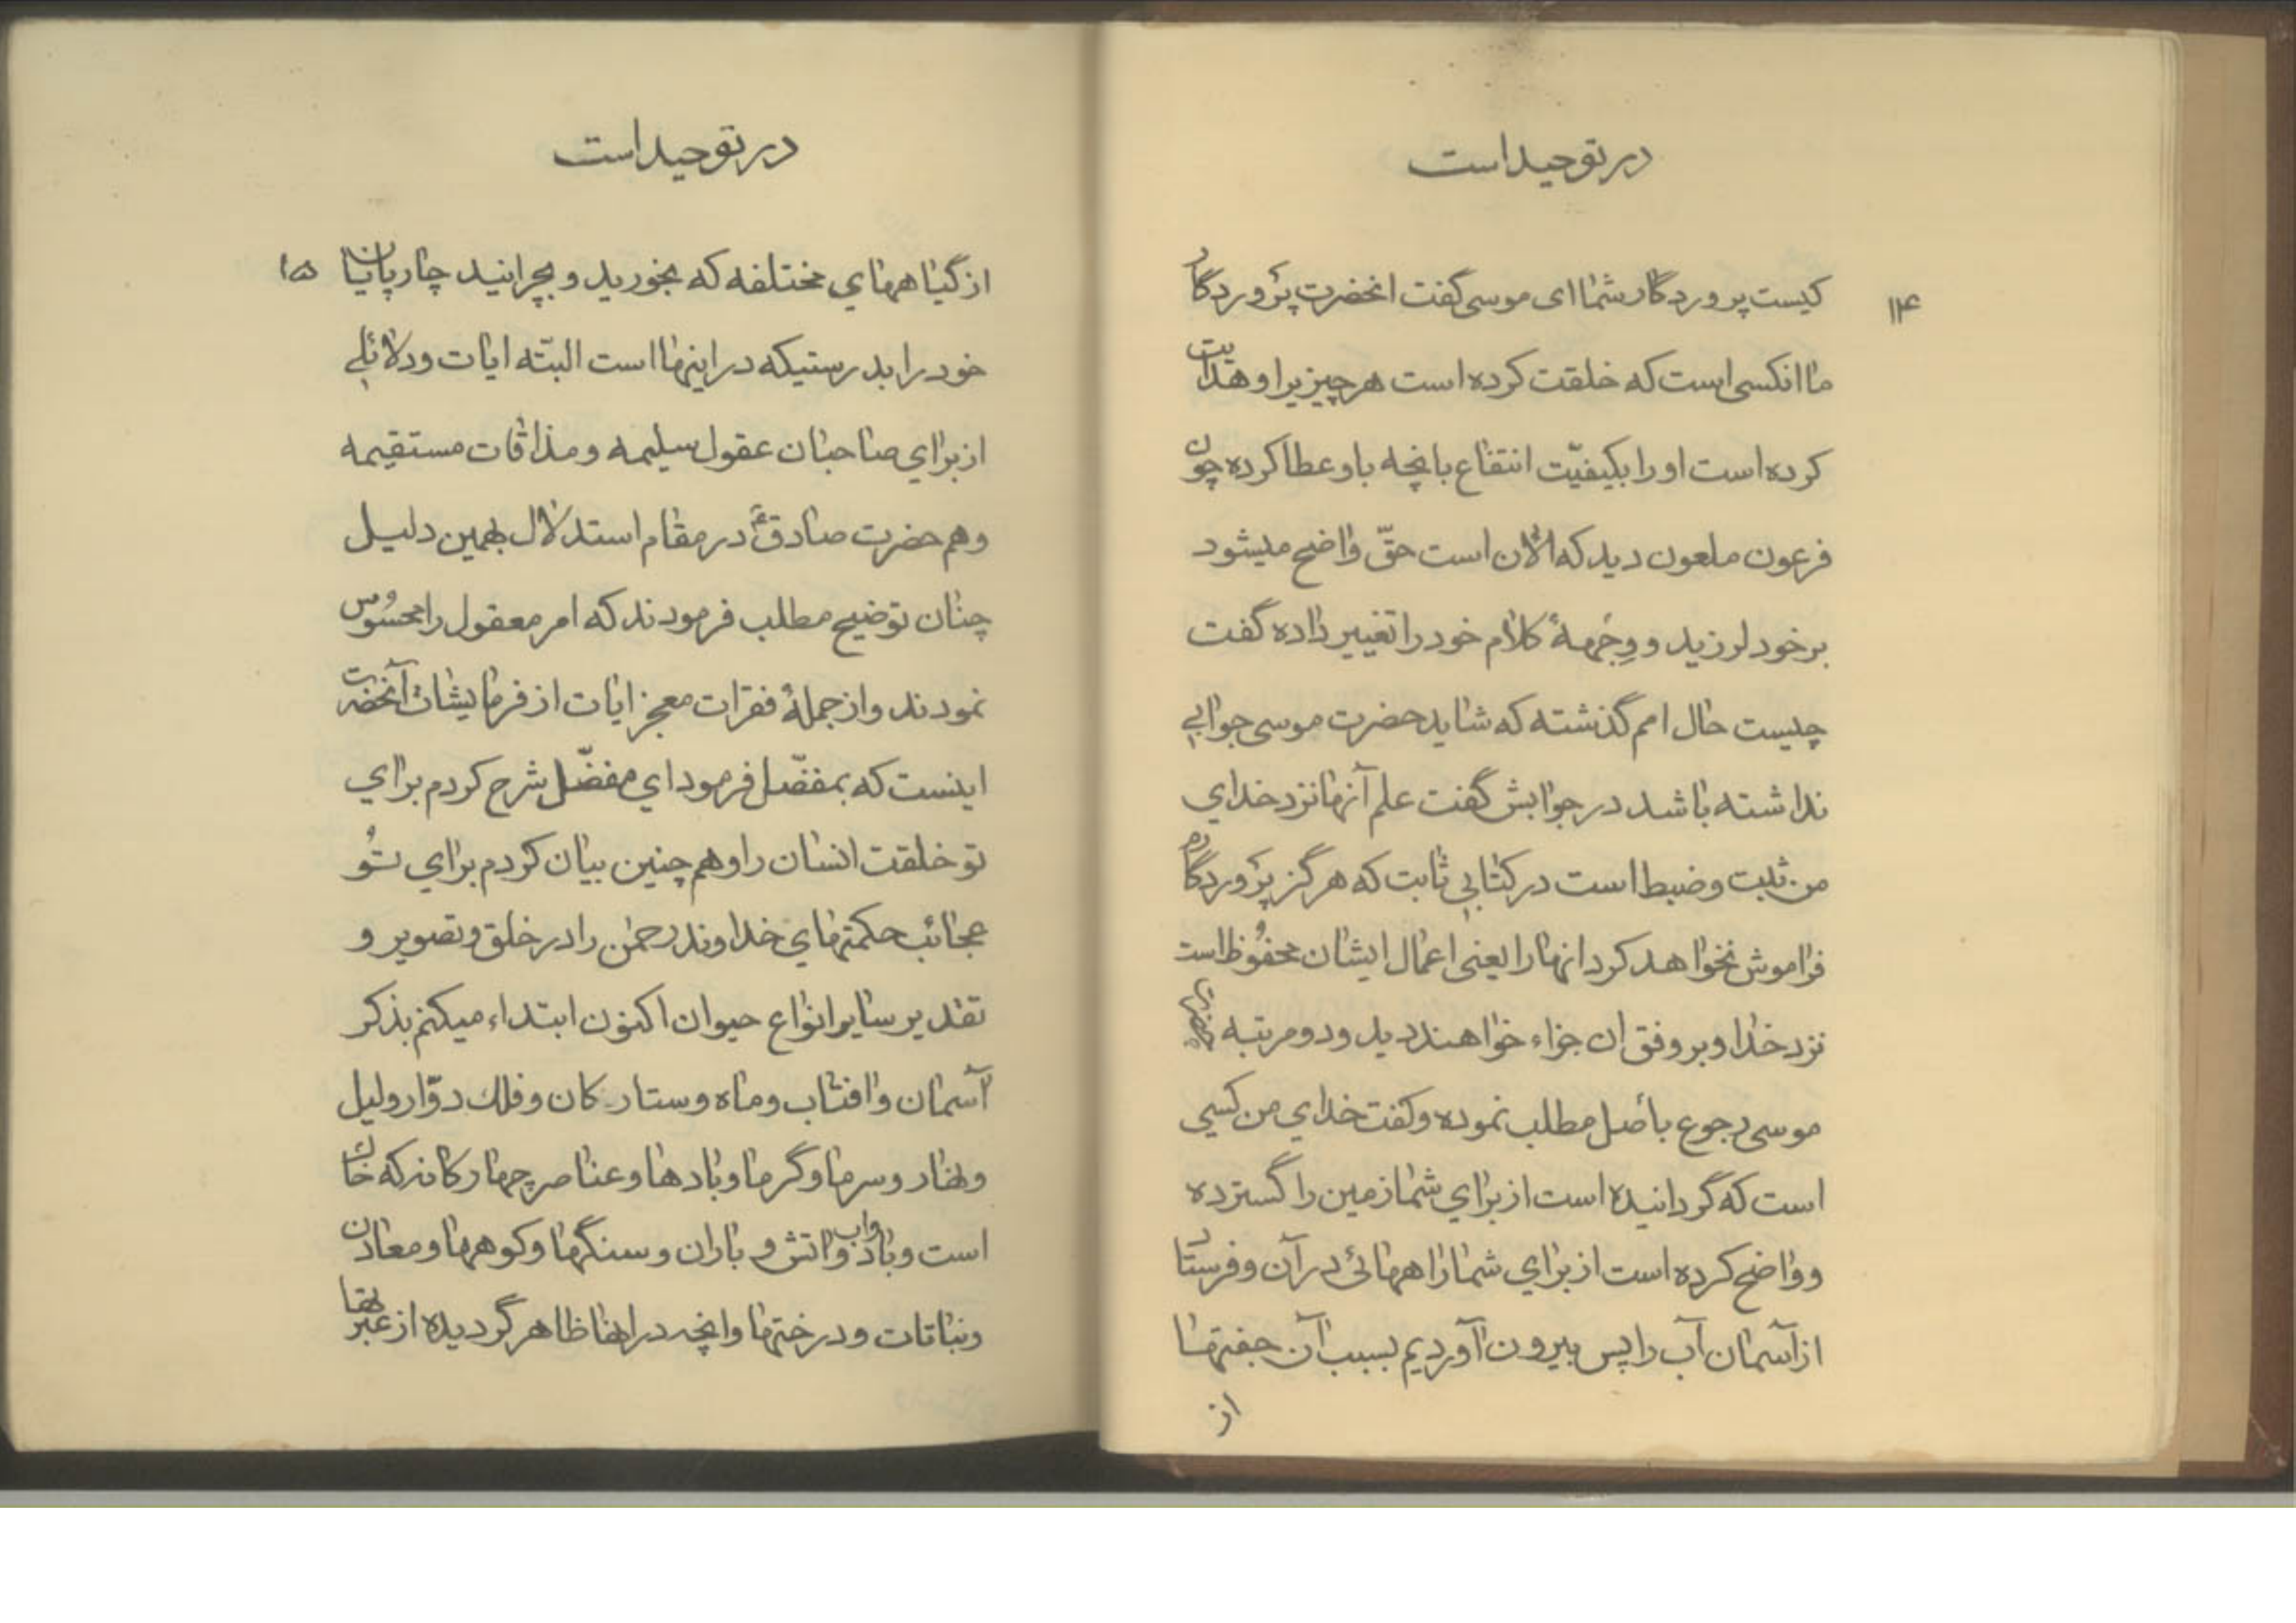 در توحید است
۱۴
کیست پروردگار شما ای موسی گفت انحضرت پروردگار
ما انکسی است که خلقت کرده است هر چیزیرا و هدایت
کرده است او را بکیفیّت انتفاع بانچه باو عطا کرده چون
فرعون ملعون دید که الان است حقّ واضح میشود
بر خود لرزید و وِجْههٔ کلام خود را تغییر داده گفت
چیست حال امم گذشته که شاید حضرت موسی جوابی
نداشته باشد در جوابش گفت علم آنها نزد خدای
من ثبت و ضبط است در کتابی ثابت که هرگز پروردگارم
فراموش نخواهد کرد انها را یعنی اعمال ایشان محفُوظ است
نزد خدا و بر وفق ان جزاء خواهند دید و دو مرتبه
موسی رجوع باصل مطلب نموده و گفت خدای من کسی
است که گردانیده است از برای شما زمین را گسترده
و واضح کرده است از برای شما راههائی در آن و فرستاد
از آسمان آب را پس بیرون آوردیم بسبب آن جفتها
از
در توحید است
۱۵
از گیاههای مختلفه که بخورید و بچرانید چارپایان
خود را بدرستیکه در اینها است البتّه ایات و دلائلی
از برای صاحبان عقول سلیمه و مذاقات مستقیمه
و هم حضرت صادقؑ در مقام استدلال بهمین دلیل
چنان توضیح مطلب فرمودند که امر معقول را محسُوس
نمودند و از جملهٔ فقرات معجز ایات از فرمایشات آنحضرت
اینست که بمفضّل فرمود ای مفضّل شرح کردم برای
تو خلقت انسان را و هم چنین بیان کردم برای تُو
عجائب حکمتهای خداوند رحمٰن را در خلق و تصویر و
تقدیر سایر انواع حیوان اکنون ابتداء میکنم بذکر
آسمان و افتاب و ماه و ستارکان و فلك دوّار و لیل
و نهار و سرما و گرما و بادها و عناصر چهارکانه که خاك
است و باد و اب و اتش و باران و سنگها و کوهها و معادن
و نباتات و درختها و انچه در انها ظاهر گردیده از عبرتها